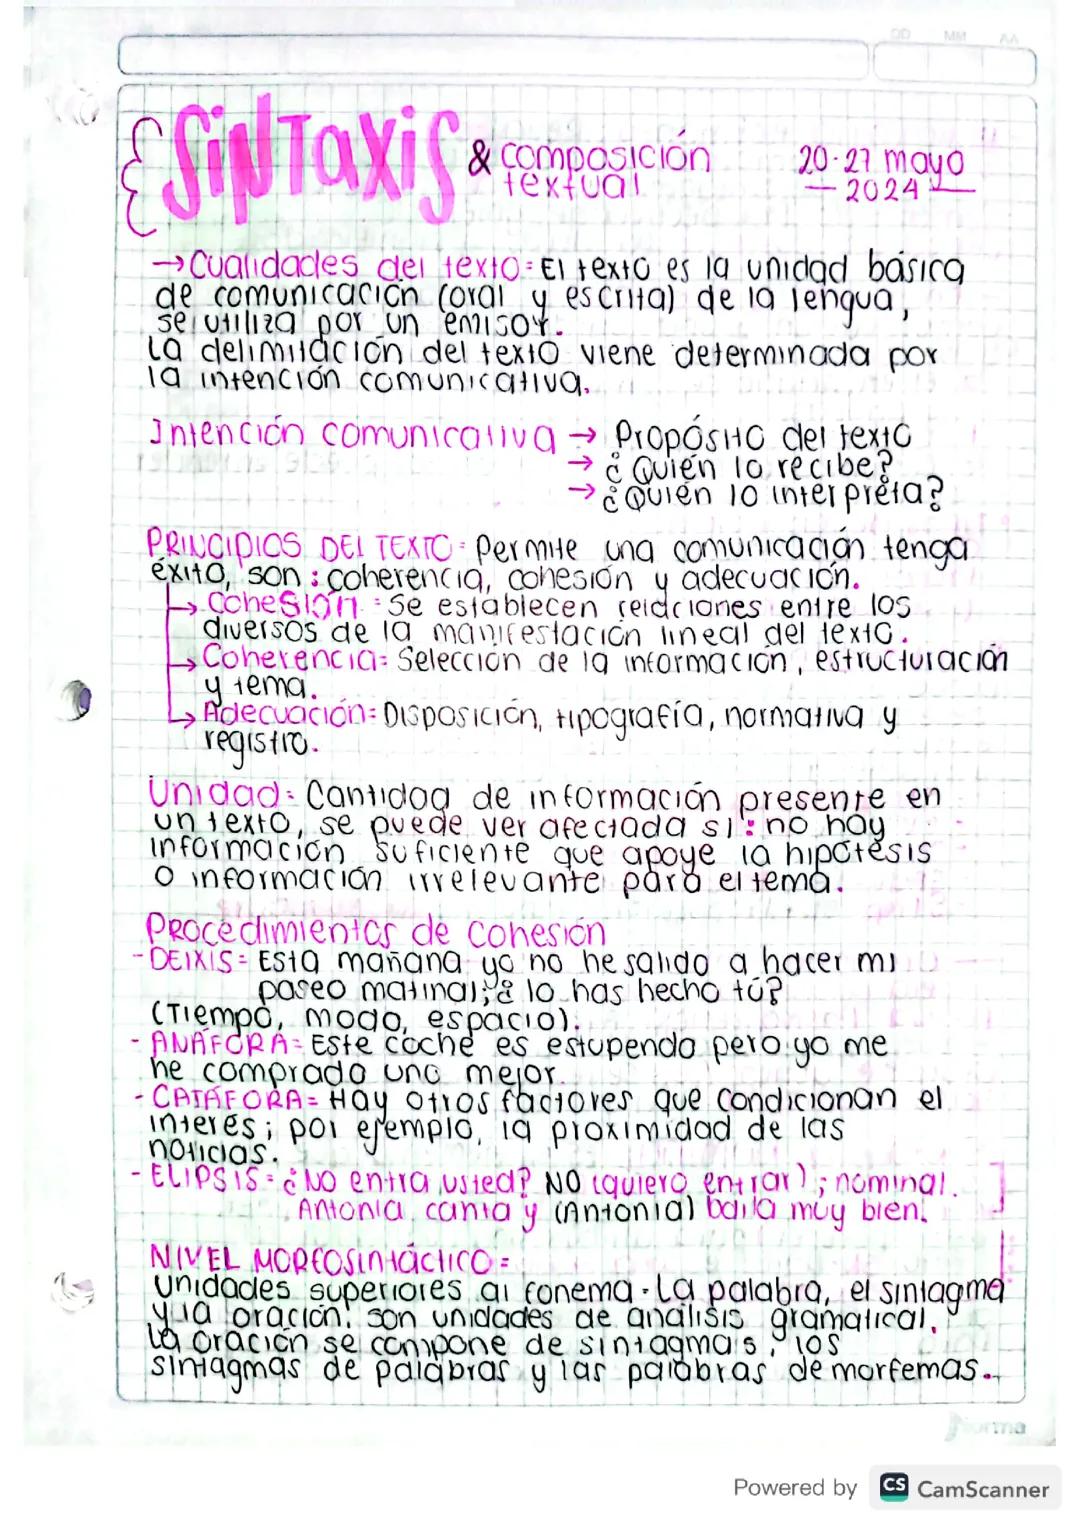 DD MM AA
SINTaxis & composición
textual
20-27 mayo
2024
→ Cualidades del texto: El texto es la unidad básica
de comunicación (oral y escrita) de la lengua,
se utiliza por un emisor.
La delimitación del texto viene determinada por
la intención comunicativa.
Intención comunicativa → Propósito del texto
→ ¿Quién lo recibe?
→ ¿Quién lo interpreta?
PRINCIPIOS DEL TEXTO: Permite una comunicación tenga
éxito, son: coherencia, cohesión y adecuación.
↳ Cohesión: Se establecen relaciones entre los
diversos de la manifestación lineal del texto.
↳ Coherencia: Selección de la información, estructuración
y tema.
↳ Adecuación: Disposición, tipografía, normativa y
registro.
Unidad: Cantidad de información presente en
un texto, se puede ver afectada si: no hay
información suficiente que apoye la hipótesis
o información irrelevante para el tema.
Procedimientos de cohesión
- DEIXIS = Esta mañana yo no he salido a hacer mi
paseo matinal; ¿ lo has hecho tú?
(Tiempo, modo, espacio).
- ANÁFORA = Este coche es estupendo pero yo me
he comprado uno mejor.
- CATÁFORA = Hay otros factores que condicionan el
interés; por ejemplo, la proximidad de las
noticias.
- ELIPSIS = ¿No entra usted? NO (quiero entrar); nominal.
Antonia canta y (Antonia) baila muy bien.
NIVEL MORFOSINTÁCTICO =
Unidades superiores al fonema. La palabra, el sintagma
y la oración, son unidades de análisis gramatical.
La oración se compone de sintagmas, los
sintagmas de palabras y las palabras de morfemas.
Norma
Powered by CS CamScanner